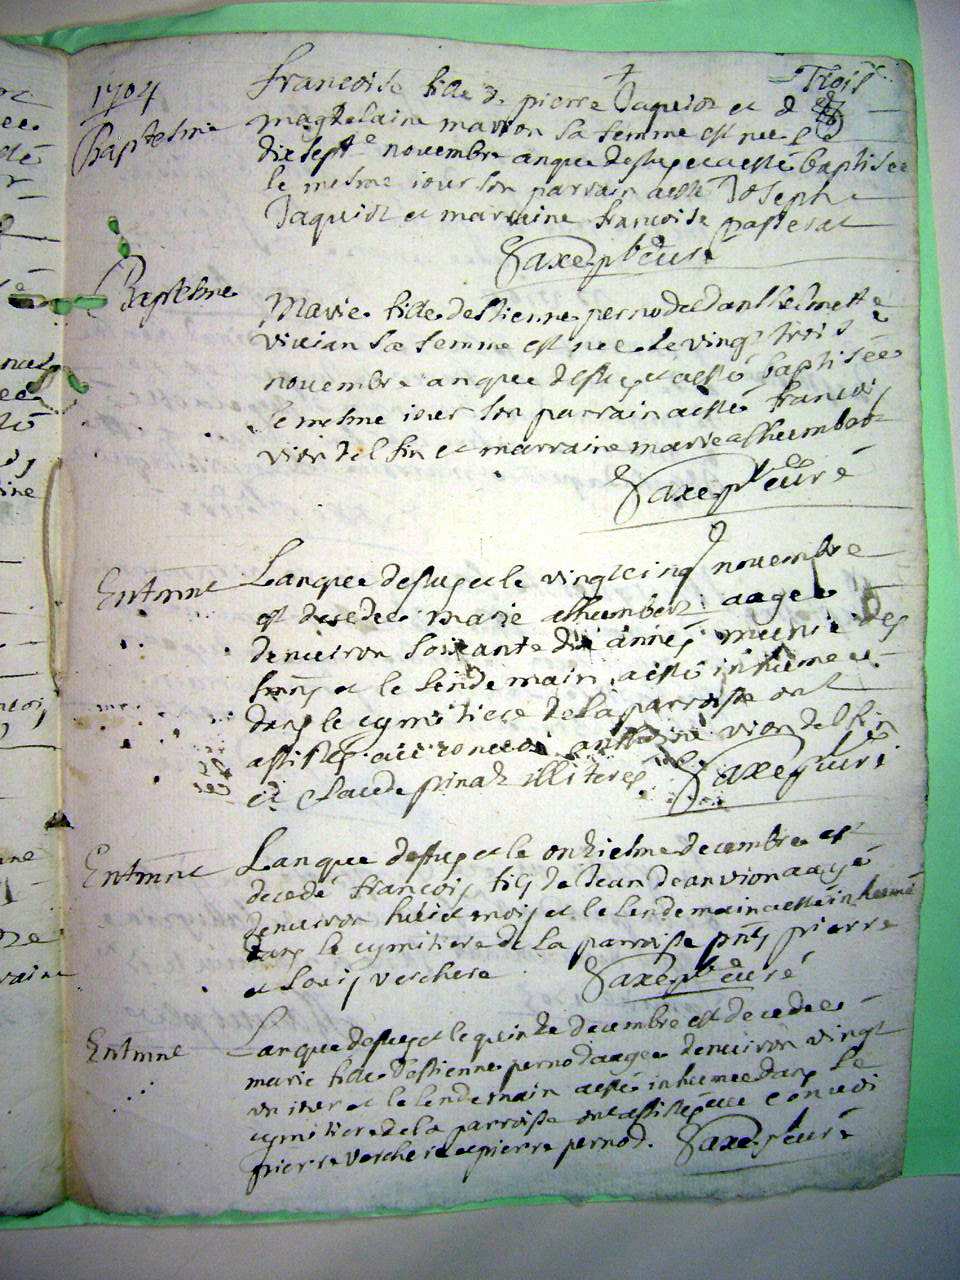 Trois
1704
Baptesme
francoise fille de pierre Jaquiot et d
magdelaine marion sa femme est nee le
dix sept novembre anque dessus et a esté baptisee
le mesme iour son parrain a esté Joseph
Jaquiot et marraine francoise passerat
Saxe pb curé
Baptesme
Marie fille destienne pernod et danthelmette
vivian sa femme est nee le vingt trois
novembre anque dessus et a esté baptisée
le mesme iour son parrain a esté francois
vion delfin et marraine marie alhumbert
Saxe pb curé
Entmnt
Lanque dessus et le vingt cinq novembre
est decedee marie alhumbert aagee
denuiron soixante dix annes munie des
et le lendemain a esté inhumee
dans le cymitiere de la parroisse ont
assistes au conuoi anthoine vion delfin
et Claude pinard illiteres Saxe curé
Entmnt
Lanque dessus et le onziesme decembre est
decedé francois fils de Jean Jeanvion aagé
denuiron huict mois et le lendemain a esté inhumé
dans le cymitiere de la parroisse pnts pierre
et Louis verchere Saxe pb curé
Entmnt
Lanque dessus et le quinze decembre est decedee
marie fille destienne pernod aagee denuiron vingt
un iour et le lendemain a esté inhumee dans le
cymitiere de la parroisse ont assistes au conuoi
pierre verchere et pierre pernod. Saxe curé